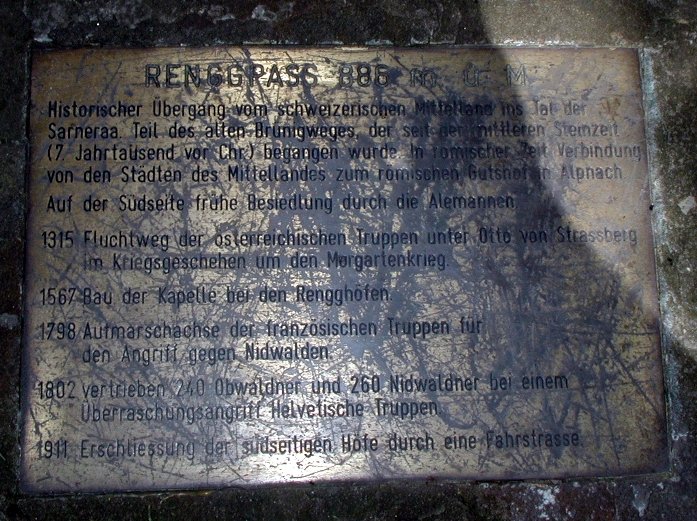 RENGGPASS 886 m. ü. M.
Historischer Übergang vom schweizerischen Mittelland ins Tal der
Sarneraa. Teil des alten Brünigweges, der seit der mittleren Steinzeit
(7. Jahrtausend vor Chr.) begangen wurde. In römischer Zeit Verbindung
von den Städten des Mittellandes zum römischen Gutshof in Alpnach.
Auf der Südseite frühe Besiedlung durch die Alemannen.
1315 Fluchtweg der österreichischen Truppen unter Otto von Strassberg
im Kriegsgeschehen um den Morgartenkrieg.
1567 Bau der Kapelle bei den Rengghöfen.
1798 Aufmarschachse der französischen Truppen für
den Angriff gegen Nidwalden.
1802 vertrieben 240 Obwaldner und 260 Nidwaldner bei einem
Überraschungsangriff Helvetische Truppen.
1911 Erschliessung der südseitigen Höfe durch eine Fahrstrasse.